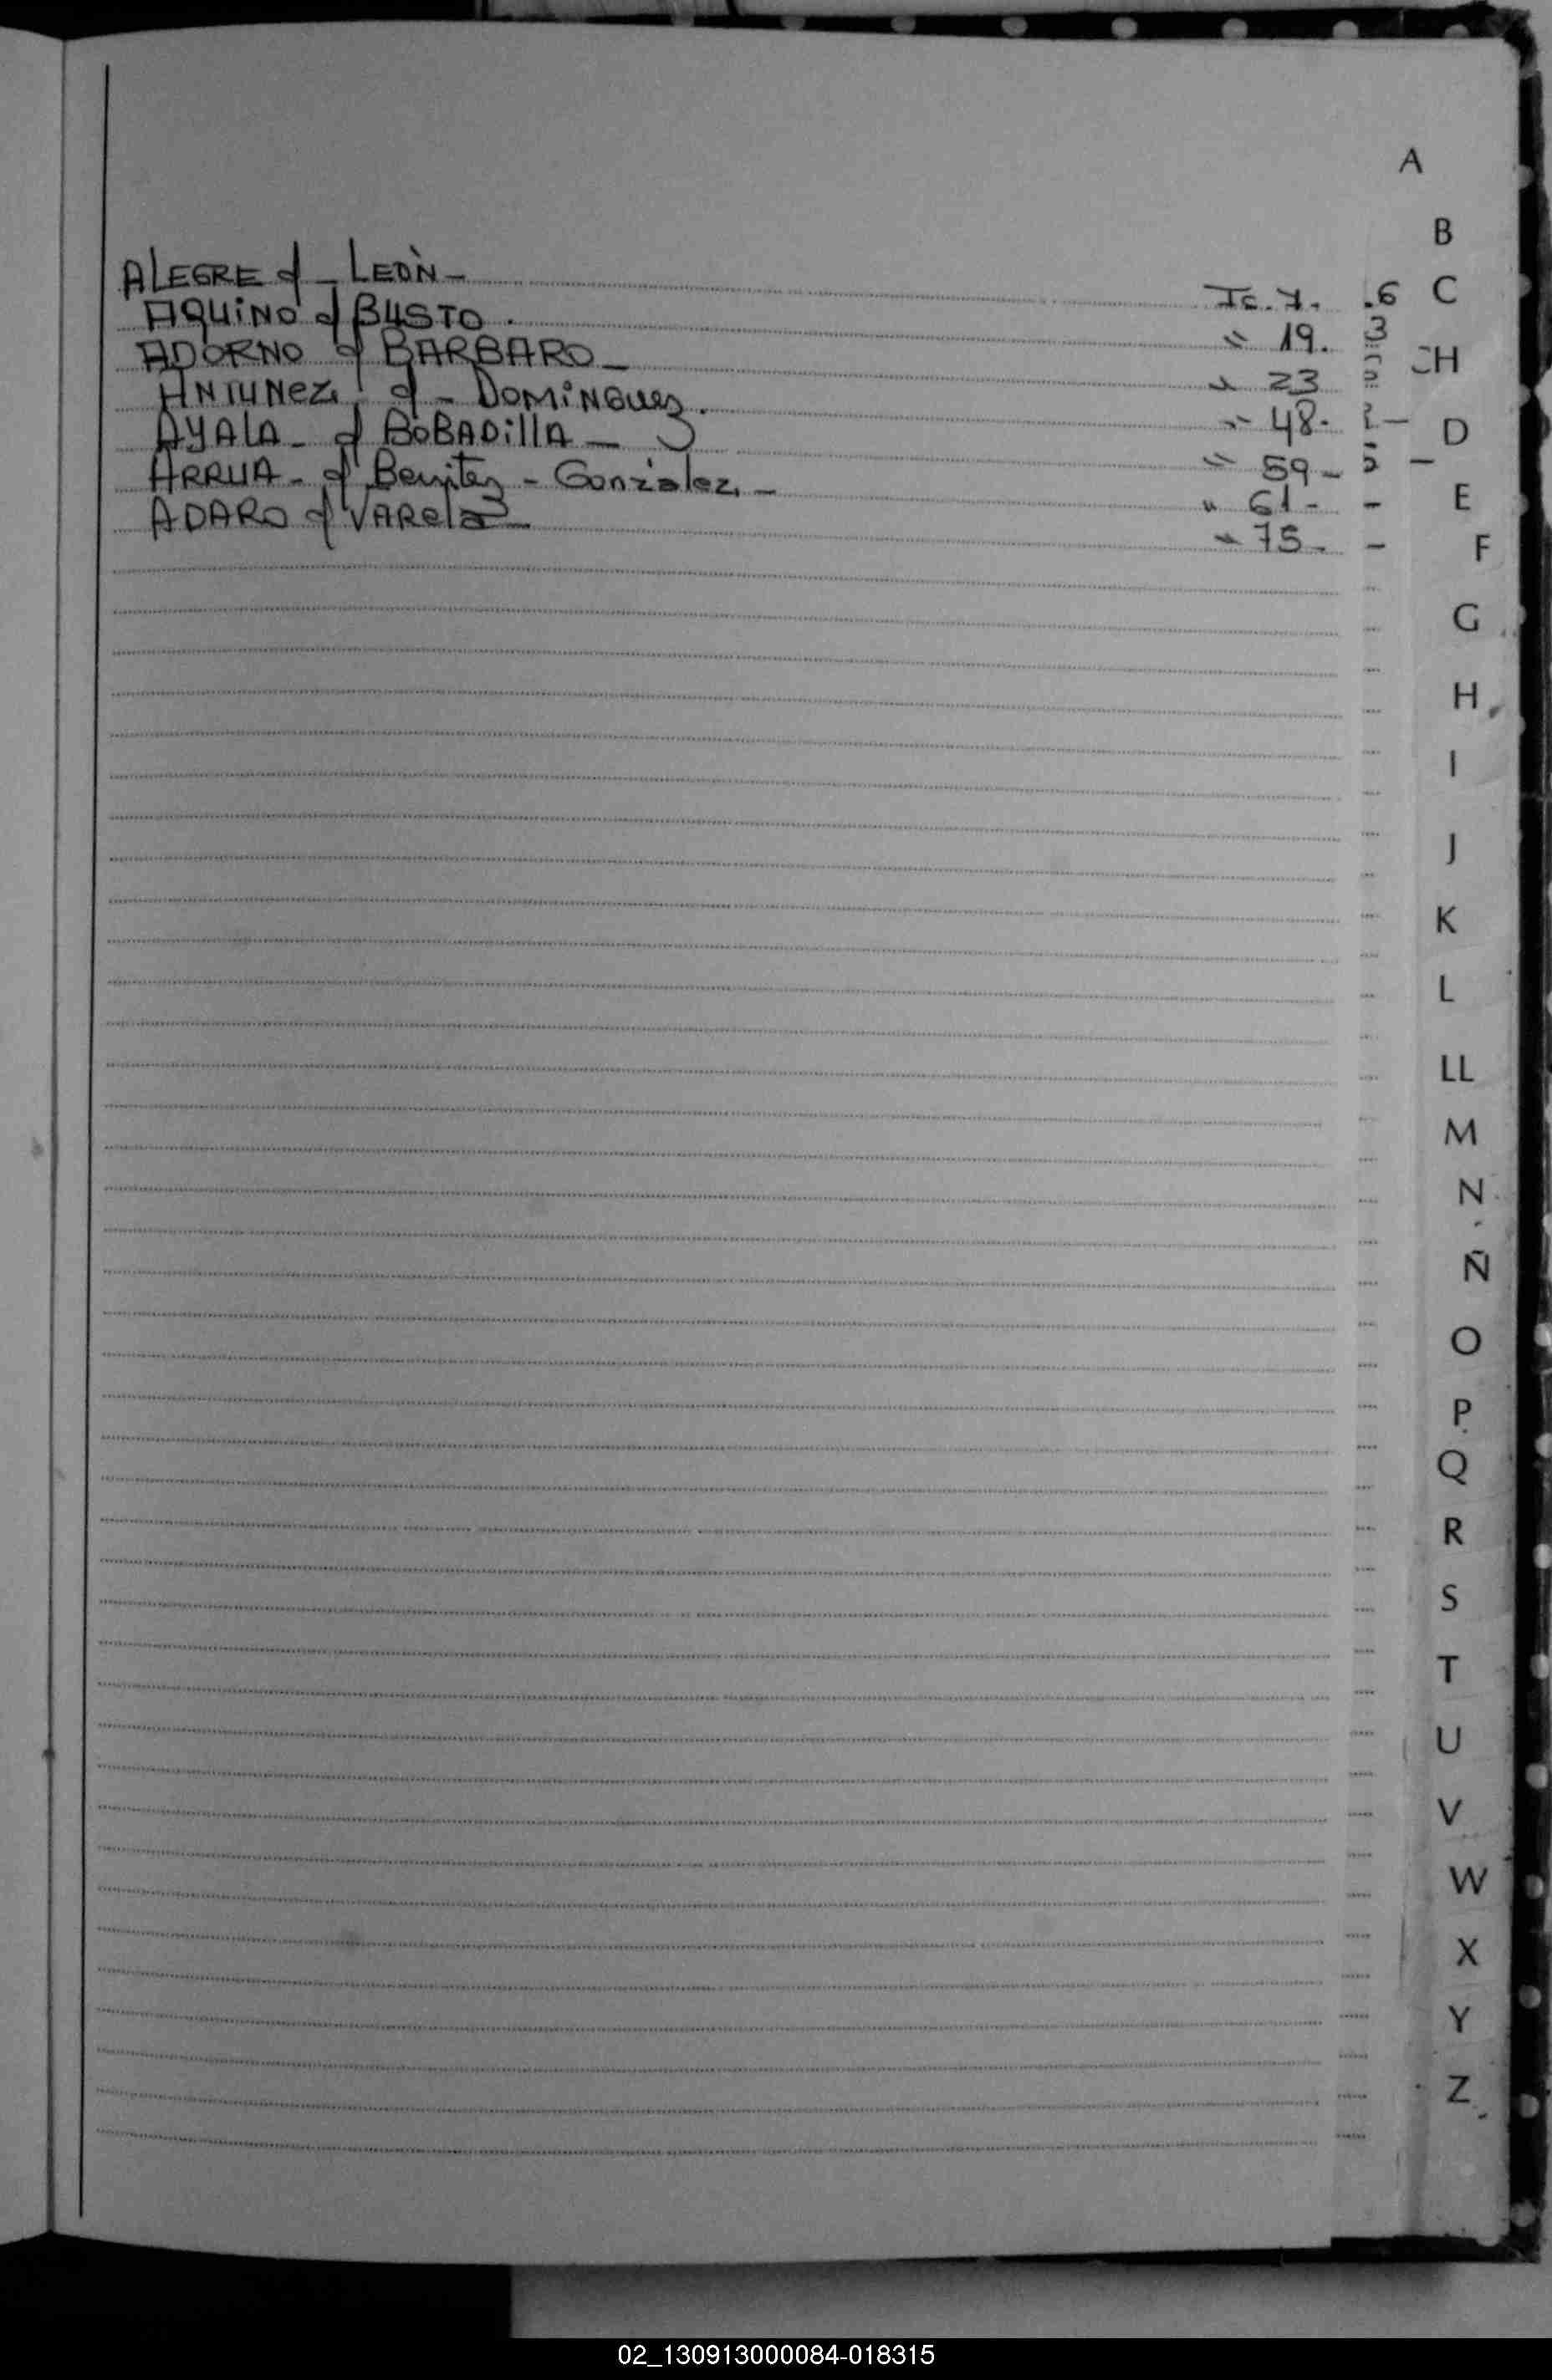 A
B
ALEGRE c/ LEÒN - Tc. 7. .6 C
AQUiNO c/ BUSTO . " 19. 3
ADORNO c/ BARBARO - " 23 CH
ANTUNez c/ - DOMiNGuez. " 48. - D
AYALA - c/ BOBADillA - " 59 - -
ARRUA - c/ Benitez - Gonzalez. - " 61 - - E
ADARO c/ VARela - " 75 - - F
G
H
I
J
K
L
LL
M
N
Ñ
O
P
Q
R
S
T
U
V
W
X
Y
Z
02_130913000084-018315